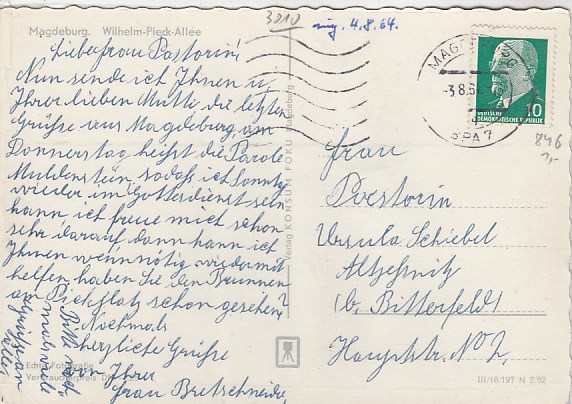 Magdeburg. Wilhelm-Pieck-Allee
3010
eing. 4.8.64.
Liebe Frau Pastorin!
Nun sende ich Ihnen u.
Ihrer lieben Mutti die letzten
Grüße aus Magdeburg am
Donnerstag heißt die Parole
Muldenstein, sodaß ich Sonntag
wieder im Gottesdienst sein
kann ich freue mich schon
sehr darauf dann kann ich
Ihnen wenn nötig wieder mit
helfen haben Sie den Brunnen
am Pieckplatz schon gesehen?
Nochmals
herzliche Grüße
von Ihrer
Frau Bretschneider
Bitte noch
viele
Grüße an
alle
Echte Fotografie
Verbraucherpreis DM
Verlag KONSUM FOKU Magdeburg
MAGDEBURG
-3.8.64
SPA 7
DEUTSCHE
DEMOKRATISCHE REPUBLIK
10
846
1,-
Frau
Pastorin
Ursula Schiebel
Altjeßnitz
(b. Bitterfeld)
Hauptstr. No 2,
III/18/197 N 2/62